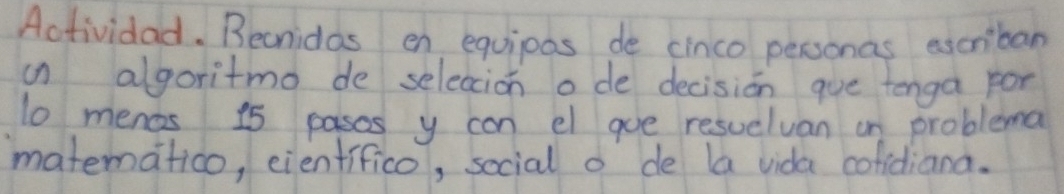 Actividad. Reunidas en equipos de cinco personas escriban
un algoritmo de selección o de decisión que tenga por
lo menos 15 pasos y con el que resuelvan un problema
matemático, científico, social o de la vida cotidiana.